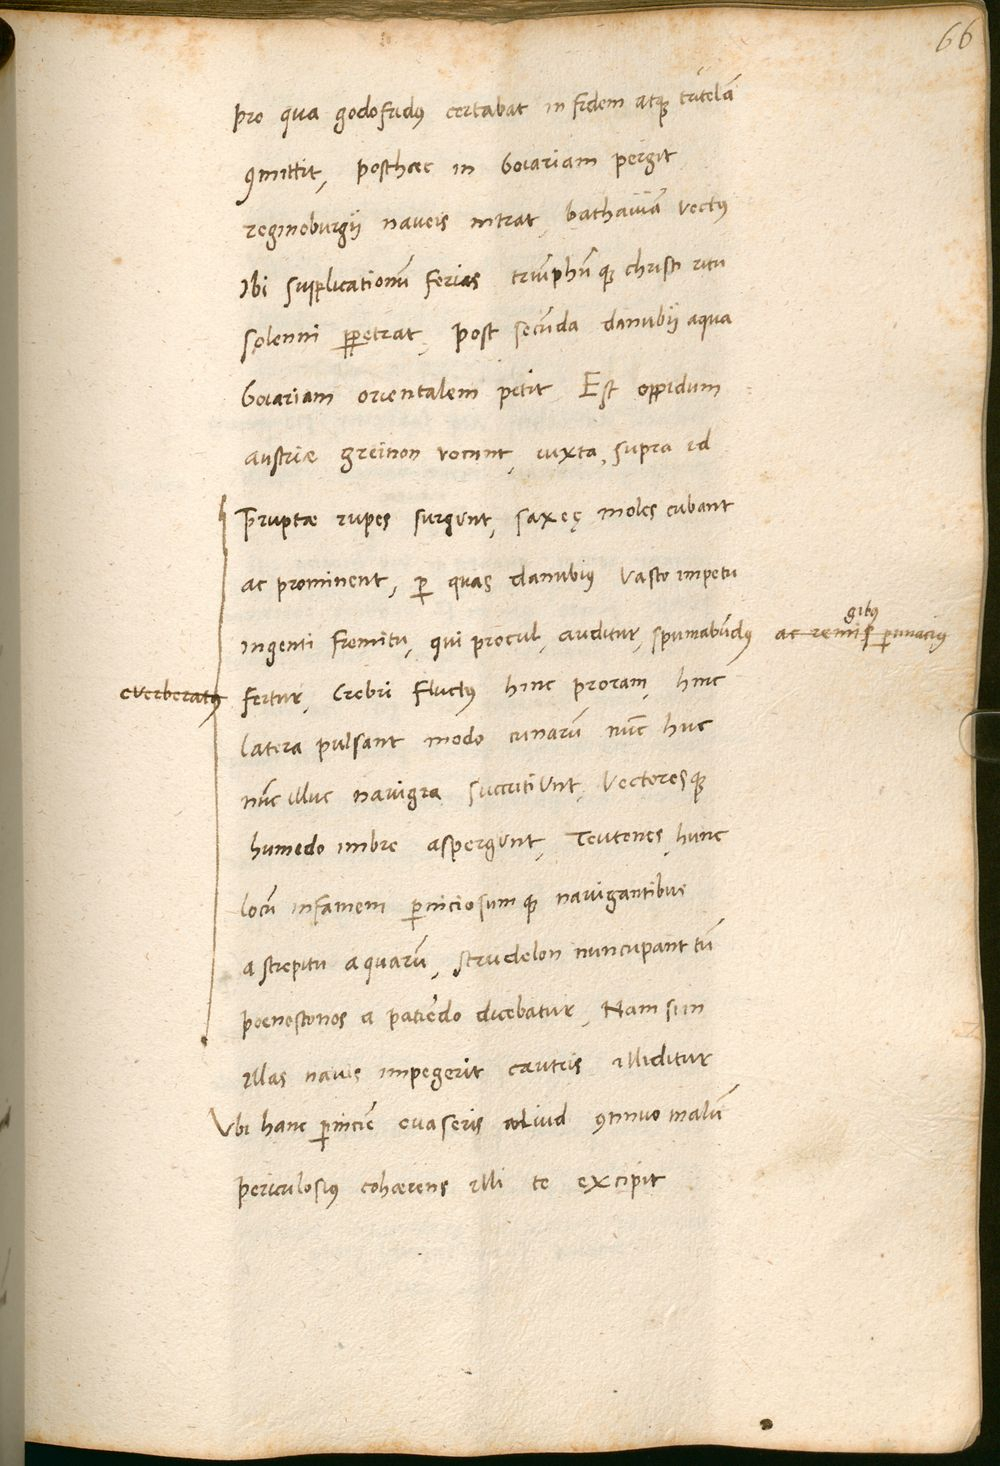 66
pro qua godofridꝰ certabat in fidem atqꝫ tutelā
ꝯmittit, posthæc in boiariam pergit
regineburgij naveis intrat, bathaviā vectꝰ
ibi supplicationū ferias triūphū qꝫ christi ritu
solenni ꝑpetrat, post secūda danubij aqua
boiariam orientalem petit Est oppidum
austriæ greinon vocant, iuxta, supra id
Pręruptæ rupes surgunt, saxeę moles cubant
ac prominent, ꝑ quas danubiꝰ vasto impetu
ingenti fremitu, qui procul, auditur, spumabūdꝰ ac remis gibꝰ ꝑtinaciꝰ
everberatꝰ fertur, Crebri fluctꝰ hinc proram, hinc
latera pulsant modo cunarū nūc huc
nūc illuc navigia succutiunt, vectoresqꝫ
humedo imbre aspergunt, Teutones hunc
locū infamem ꝑniciosum qꝫ navigantibus
a strepitu aquarū, strudelon nuncupant tū
poenostonos a patiēdo dicebatur, Nam si in
illas navis impegerit cautes illiditur
Vbi hanc ꝑniciē evaseris aliud ꝯtinuo malū
periculosiꝰ cohærens illi te excipit